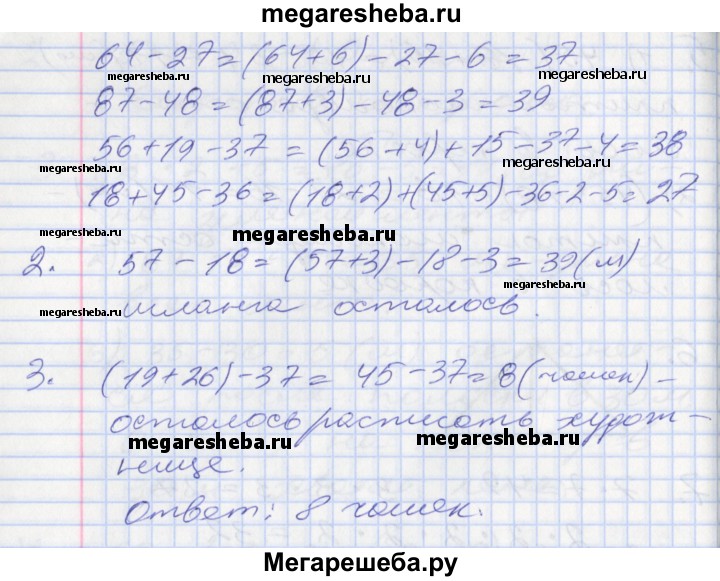 megaresheba.ru
64-27=(64+6)-27-6=37
megaresheba.ru megaresheba.ru megaresheba.ru
87-48=(87+3)-48-3=39
56+19-37=(56+4)+15-37-4=38
megaresheba.ru megaresheba.ru
18+45-36=(18+2)+(45+5)-36-2-5=27
megaresheba.ru
2. 57-18=(57+3)-18-3=39(м)
megaresheba.ru
шланга осталось.
megaresheba.ru
3. (19+26)-37=45-37=8(чашек)-
осталось расписать худож-
megaresheba.ru megaresheba.ru
нице.
Ответ: 8 чашек.
Мегарешеба.ру